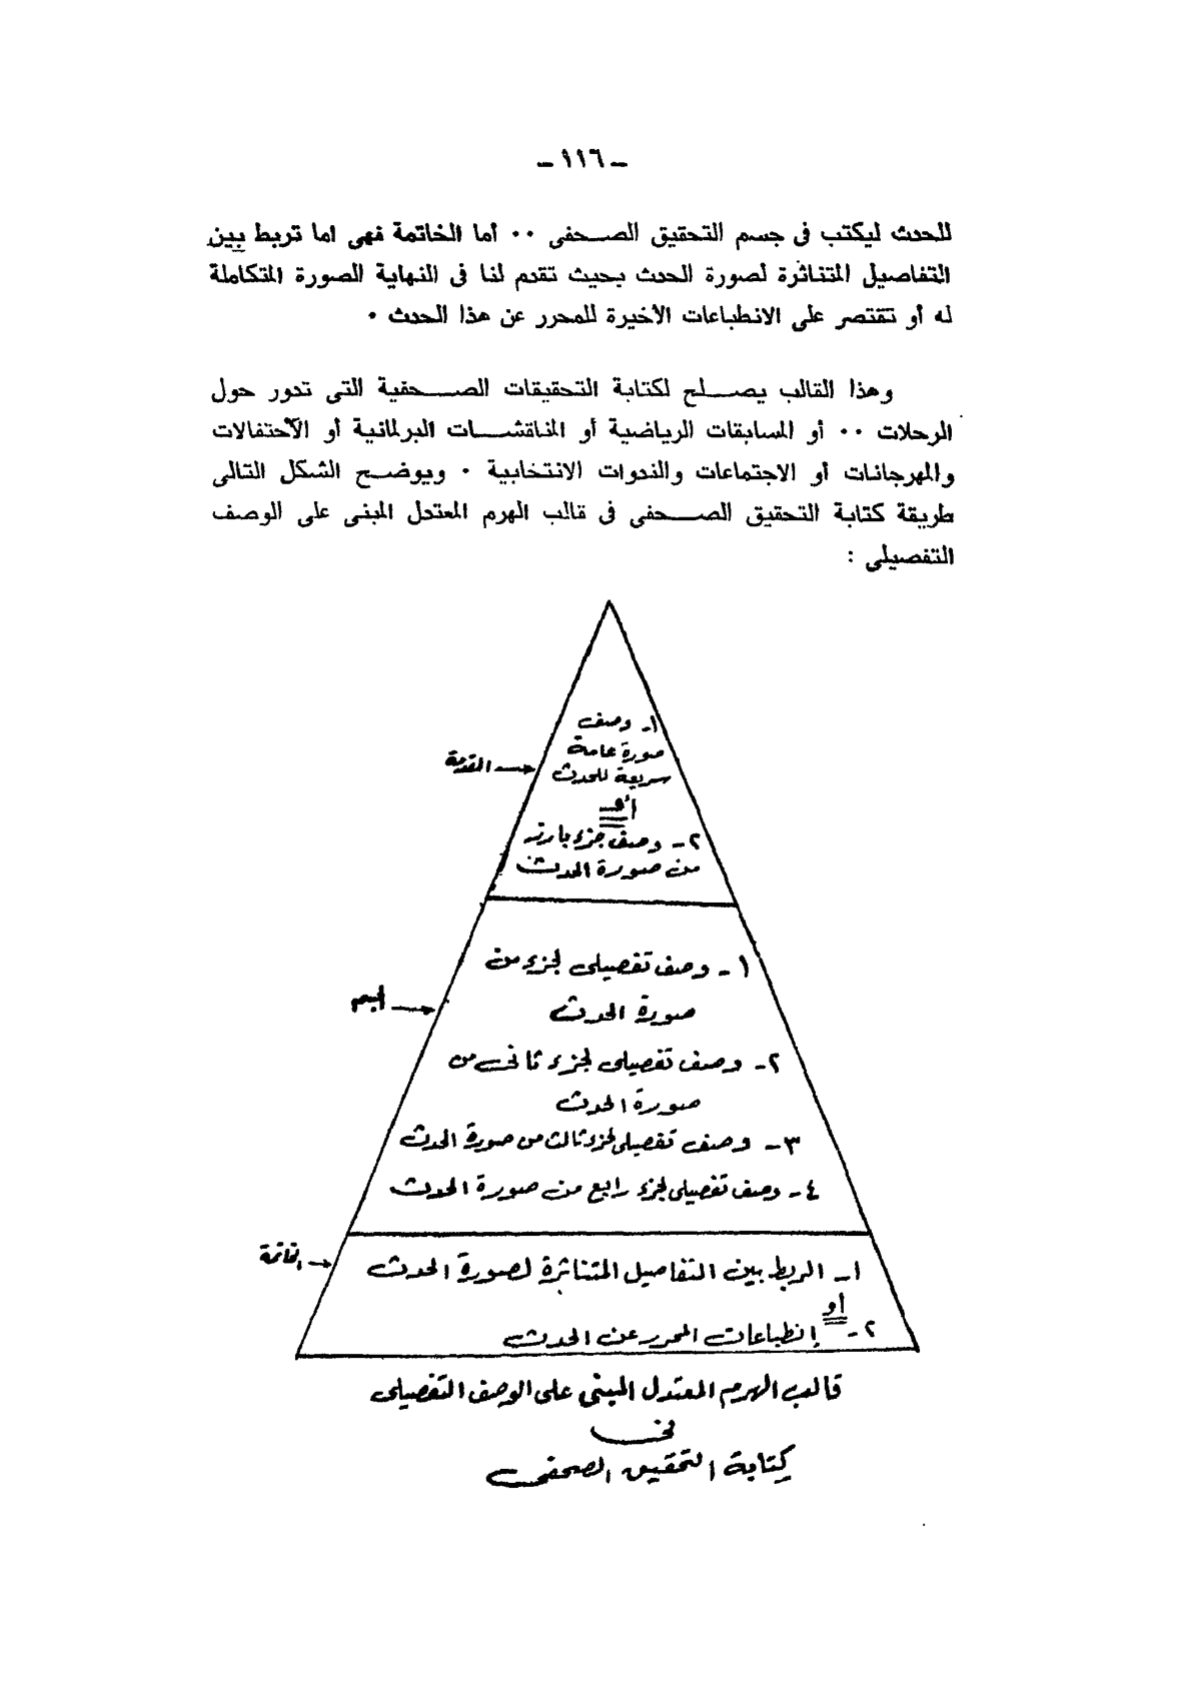 – ١١٦ –
للحدث ليكتب فى جسم التحقيق الصحفى ٠٠ أما الخاتمة فهى اما تربط بين
التفاصيل المتناثرة لصورة الحدث بحيث تقدم لنا فى النهاية الصورة المتكاملة
له أو تقتصر على الانطباعات الأخيرة للمحرر عن هذا الحدث ٠
وهذا القالب يصلح لكتابة التحقيقات الصحفية التى تدور حول
الرحلات ٠٠ أو المسابقات الرياضية أو المناقشات البرلمانية أو الأحتفالات
والمهرجانات أو الاجتماعات والندوات الانتخابية ٠ ويوضح الشكل التالى
طريقة كتابة التحقيق الصحفى فى قالب الهرم المعتدل المبنى على الوصف
التفصيلى :
١- وصف
صورة عامة
سريعة للحدث
المقدمة
أو
٢- وصف جزء بارز
من صورة الحدث
١- وصف تفصيلى لجزء من
صورة الحدث
الجسم
٢- وصف تفصيلى لجزء ثانى من
صورة الحدث
٣- وصف تفصيلى لجزء ثالث من صورة الحدث
٤- وصف تفصيلى لجزء رابع من صورة الحدث
الخاتمة
١- الربط بين التفاصيل المتناثرة لصورة الحدث
أو
٢- إنطباعات المحرر عن الحدث
قالب الهرم المعتدل المبنى على الوصف التفصيلى
فى
كتابة التحقيق الصحفى